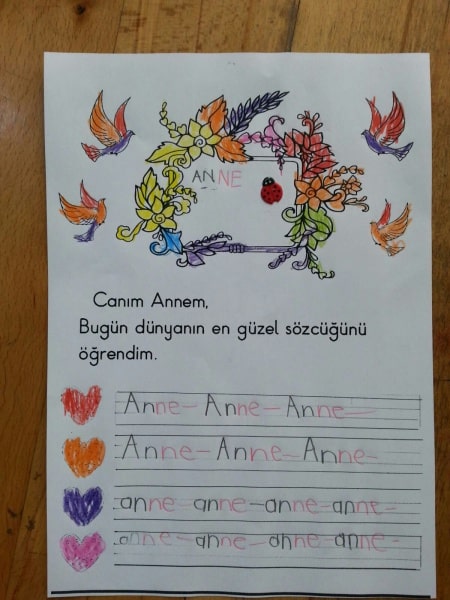 ANNE
Canım Annem,
Bugün dünyanın en güzel sözcüğünü
öğrendim.
Anne- Anne- Anne-
Anne- Anne- Anne-
anne- anne- anne- anne-
anne- anne- anne- anne-